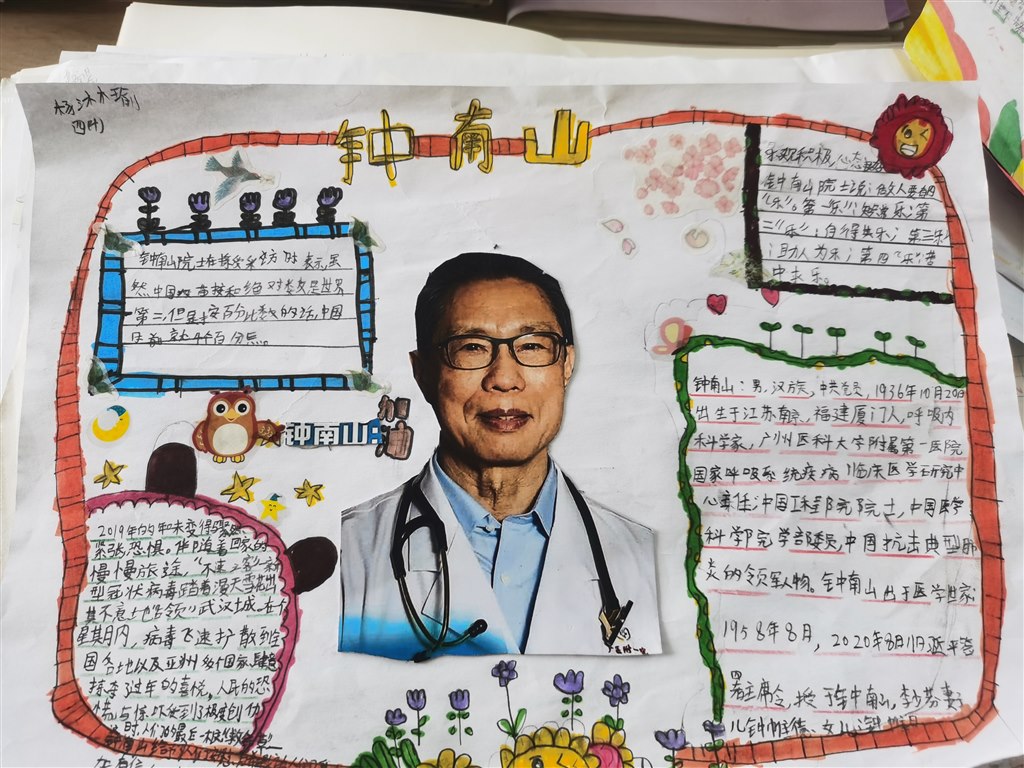 杨沐瑜
四
钟南山
乐观积极,心态
钟南山院士说:做人要有四
"乐"。第一"乐":知足常乐;第
二"乐":自得其乐;第三乐
:助人为乐;第四"乐":苦
中求乐。
钟南山院士在接受采访时表示,虽
然中国发布接种绝对数是世界
第二,但是按百分比数的话,中国
目前就4个百分点。
钟南山 加油
钟南山:男,汉族,中共党员,1936年10月20日
出生于江苏南京,福建厦门人,呼吸内
科学家,广州医科大学附属第一医院
国家呼吸系统疾病临床医学研究中
心主任,中国工程院院士,中国医学
科学院学部委员,中国抗击典型肺
炎的领军人物。钟南山出于医学世家
1958年8月,2020年8月11日近平签
署主席令,授于钟南山,李少芬妻子
儿钟帷德、女儿
2019年的年末变得
紧张恐惧。伴随着回家的
慢慢旅途,"不速之客"新
型冠状病毒踏着漫天雪花出
其不意地占领了武汉城,在个
星其月内,病毒飞速扩散到全
国各地以及亚洲多个国家,
掠夺了过年的喜悦,人民的恐
慌与惊吓
时,人们